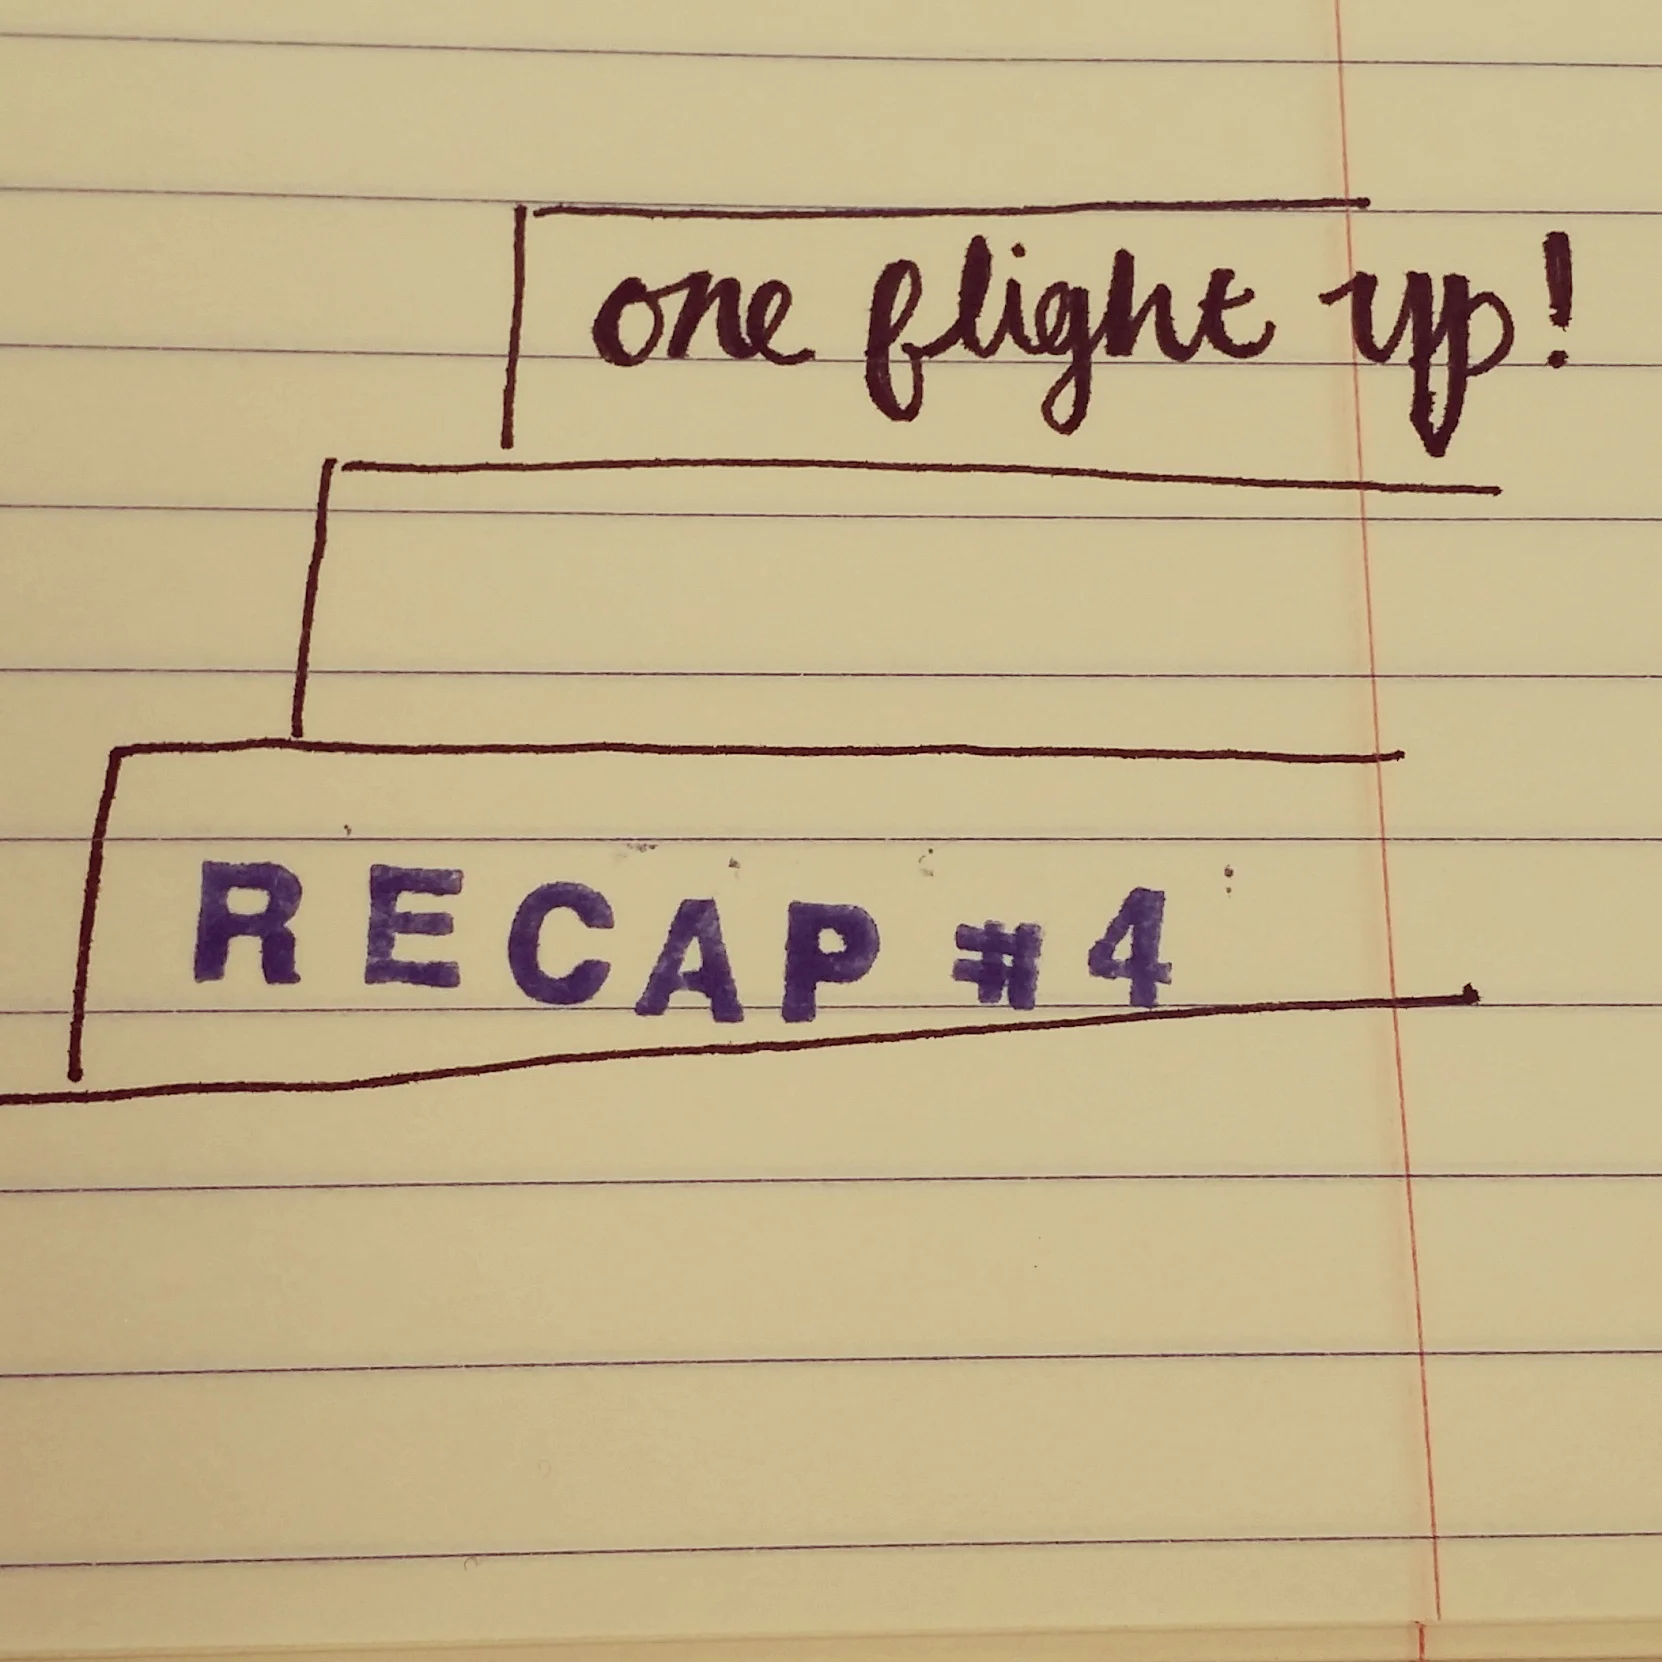 one flight up!
RECAP #4